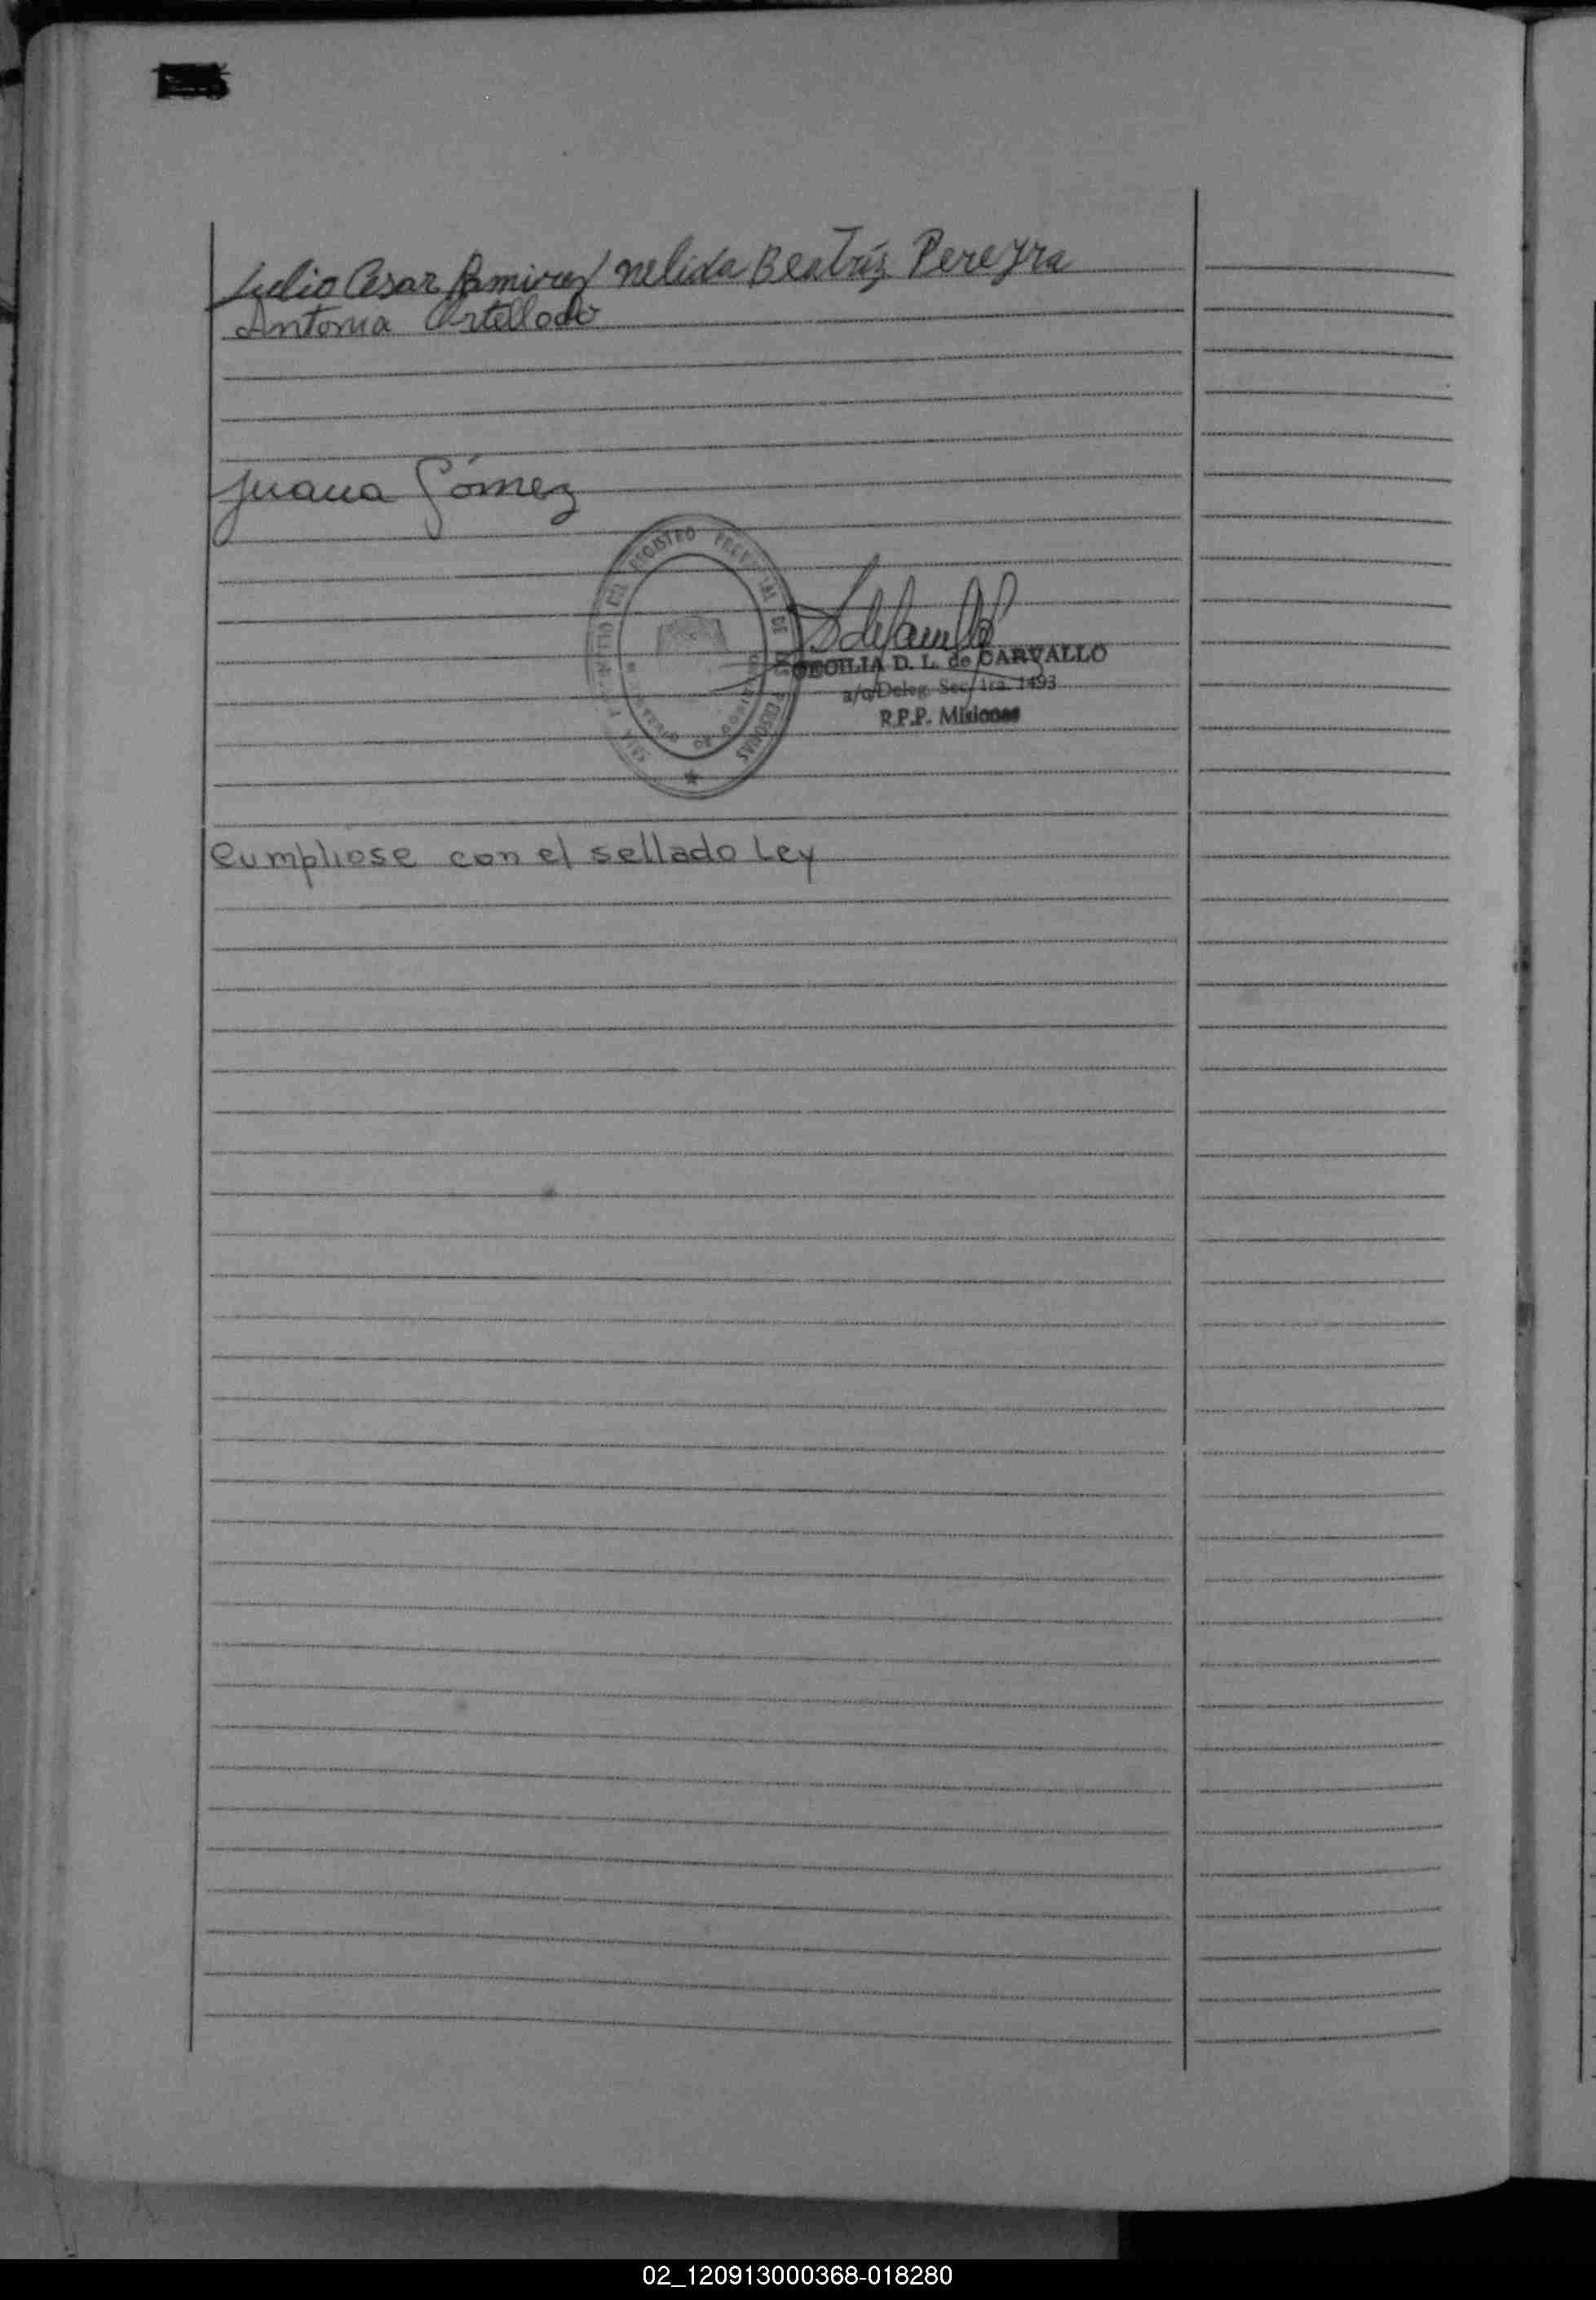 Julio Cesar Ramirez nelida Beatríz Pereyra
Antonia
Juana Gómez
REGISTRO PROVINCIAL DE LAS PERSONAS
CECILIA D. L. de CARVALLO
a/c/Deleg. Sec/1ra. 1493
R.P.P. Misiones
Cumpliose con el sellado Ley
02_120913000368-018280